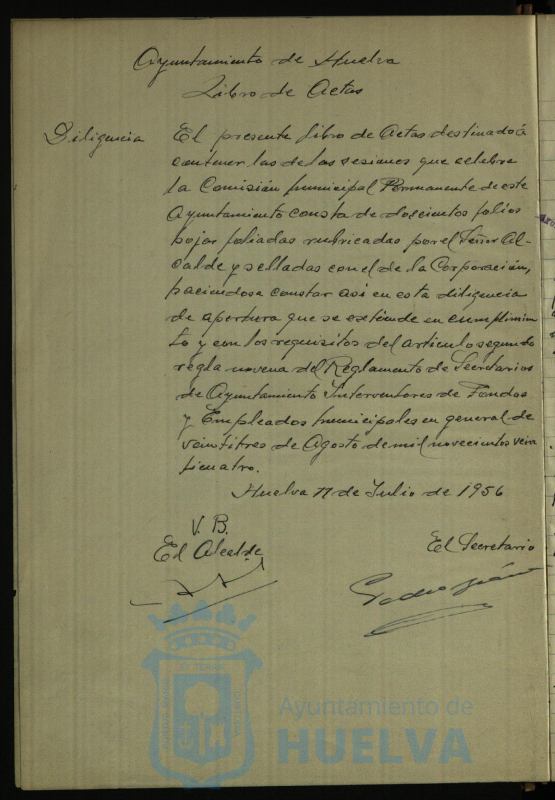 Ayuntamiento de Huelva
Libro de Actas
Diligencia El presente libro de Actas destinado a
contener las de las sesiones que celebre
la Comisión municipal Permanente de este
Ayuntamiento consta de doscientos folios
hojas foliadas rubricadas por el Señor Al-
calde y selladas con el de la Corporación,
haciendose constar asi en esta diligencia
de apertura que se extiende en cumplimien
to y con los requisitos del articulo segundo
regla novena del Reglamento de Secretarios
de Ayuntamiento Interventores de Fondos
y Empleados municipales en general de
veintitres de Agosto de mil novecientos vein
ticuatro.
Huelva 17 de Julio de 1956
V. B.
El Alcalde
El Secretario
Ayuntamiento de
HUELVA